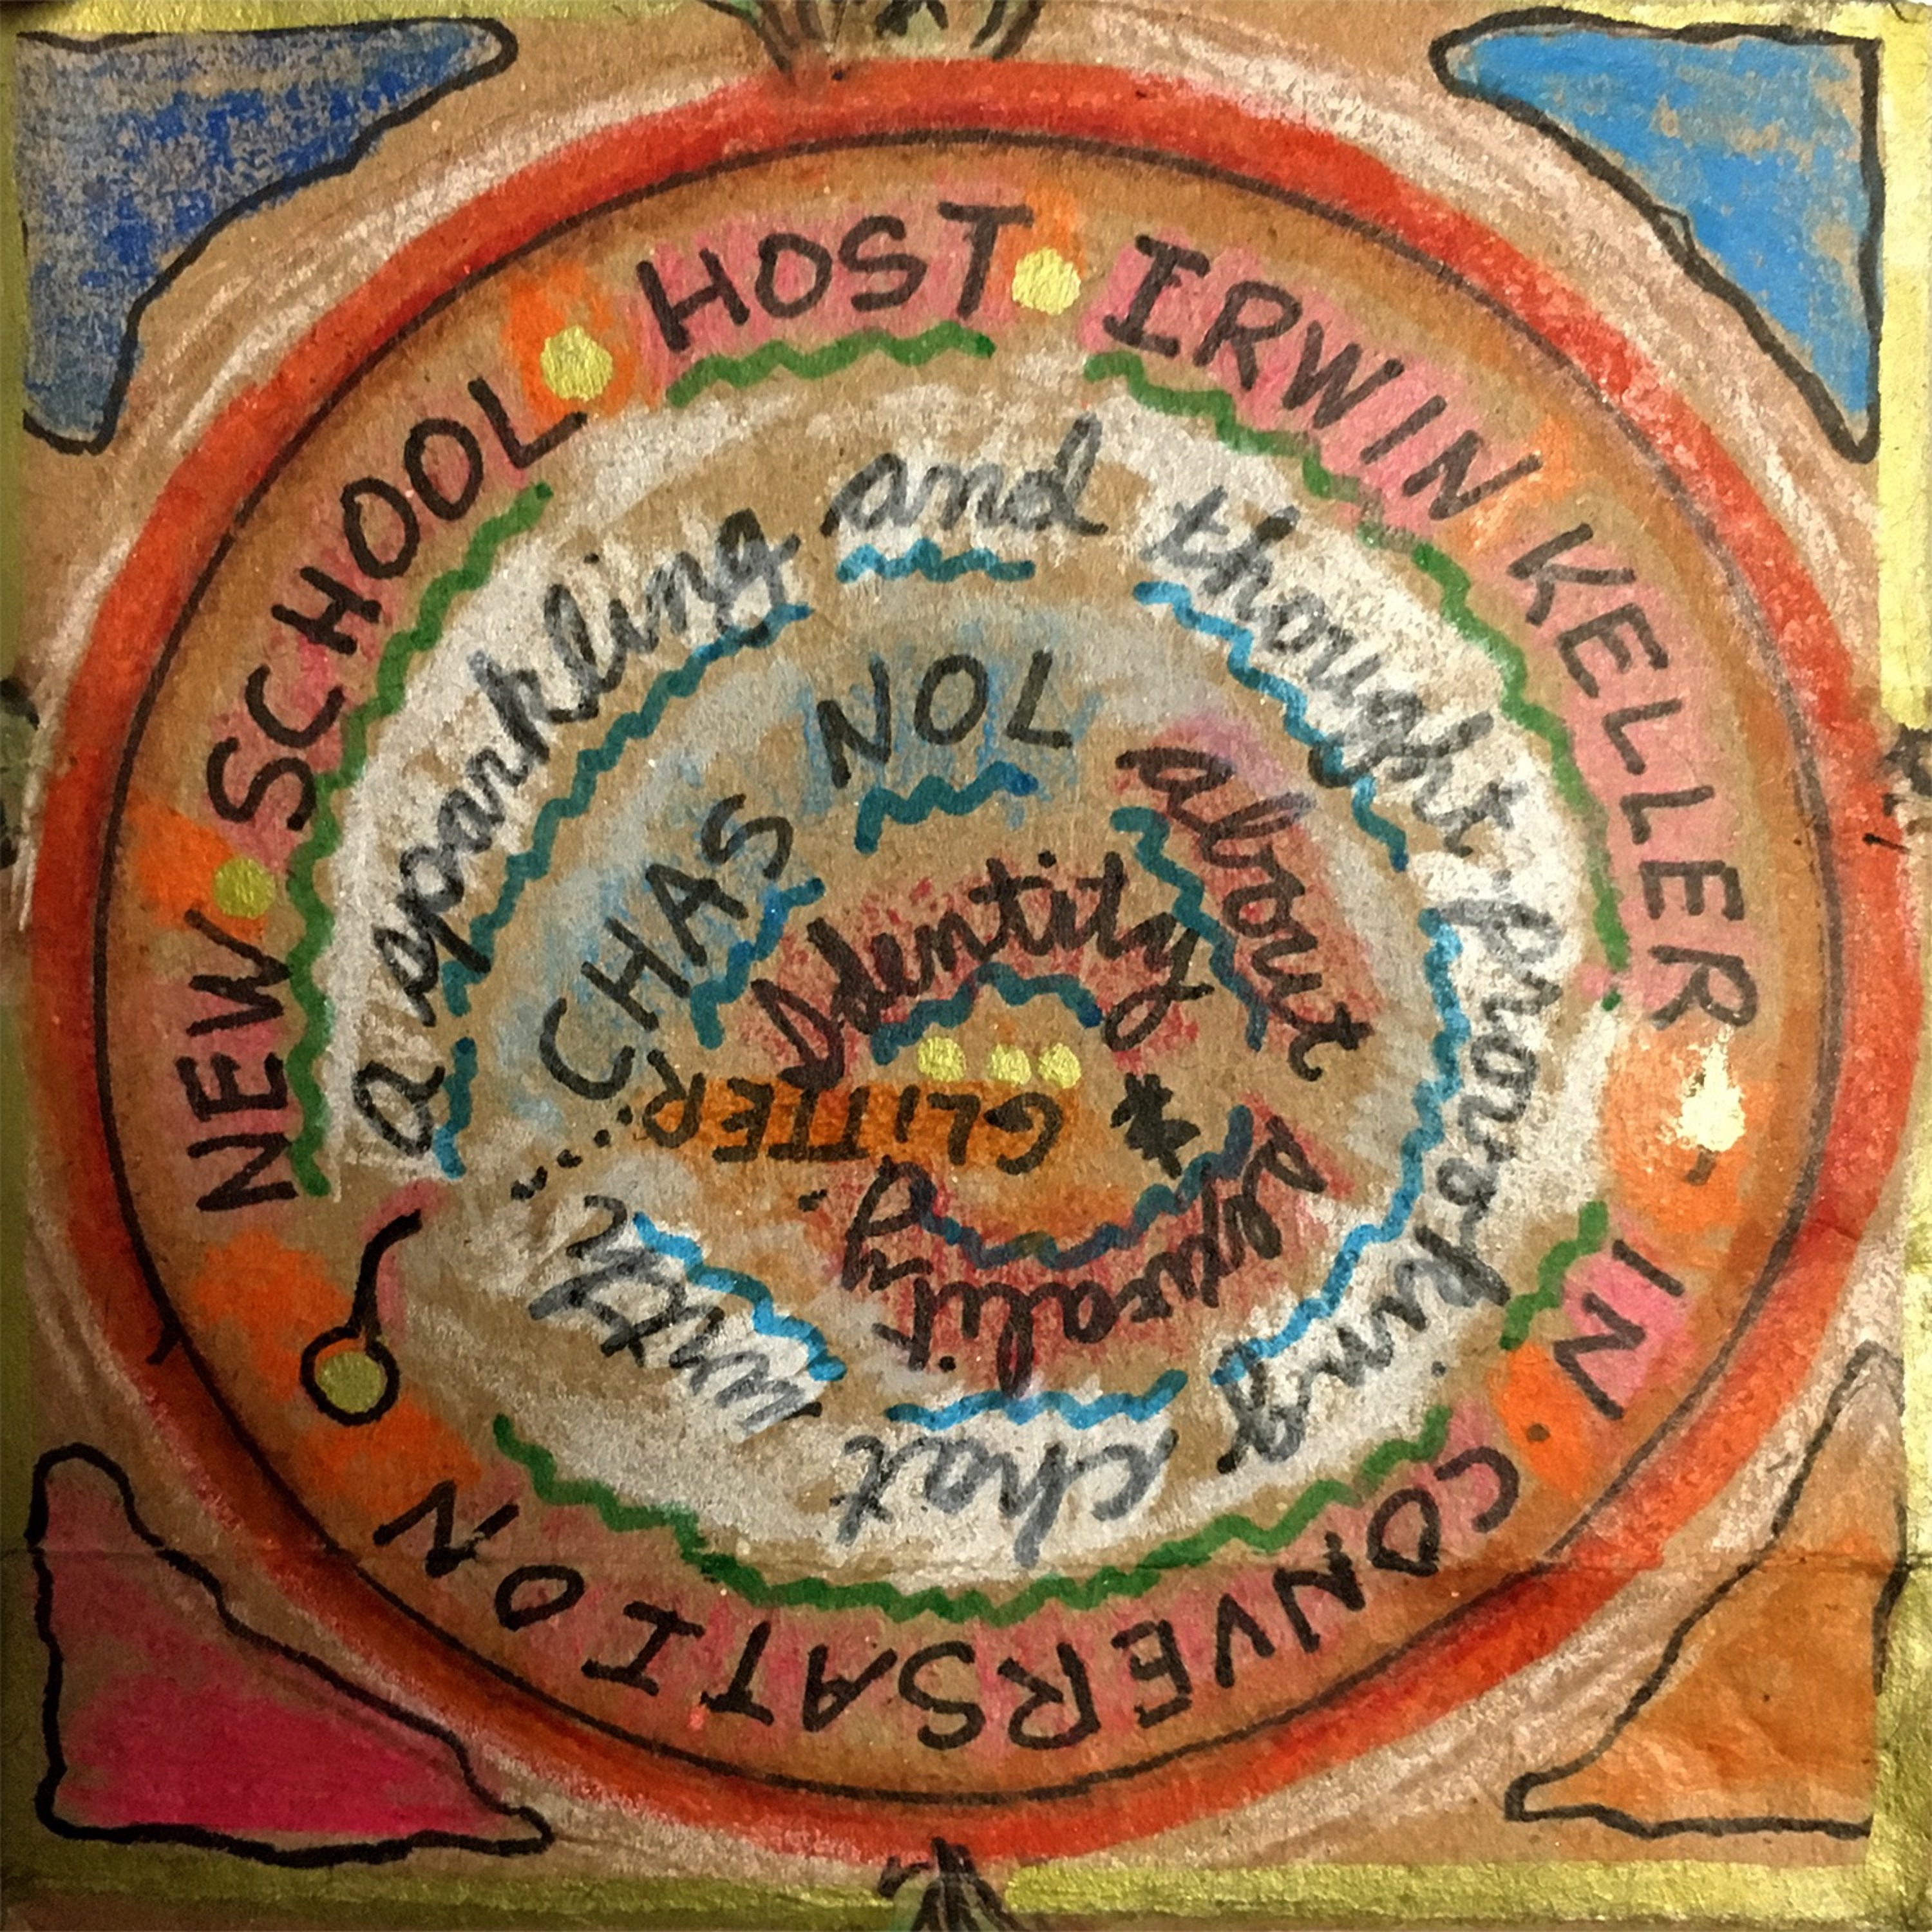 NEW • SCHOOL • HOST • IRWIN KELLER - IN • CONVERSATION
a sparkling and thought provoking chat with
CHAS NOL about sexuality
Identity * GLITTER